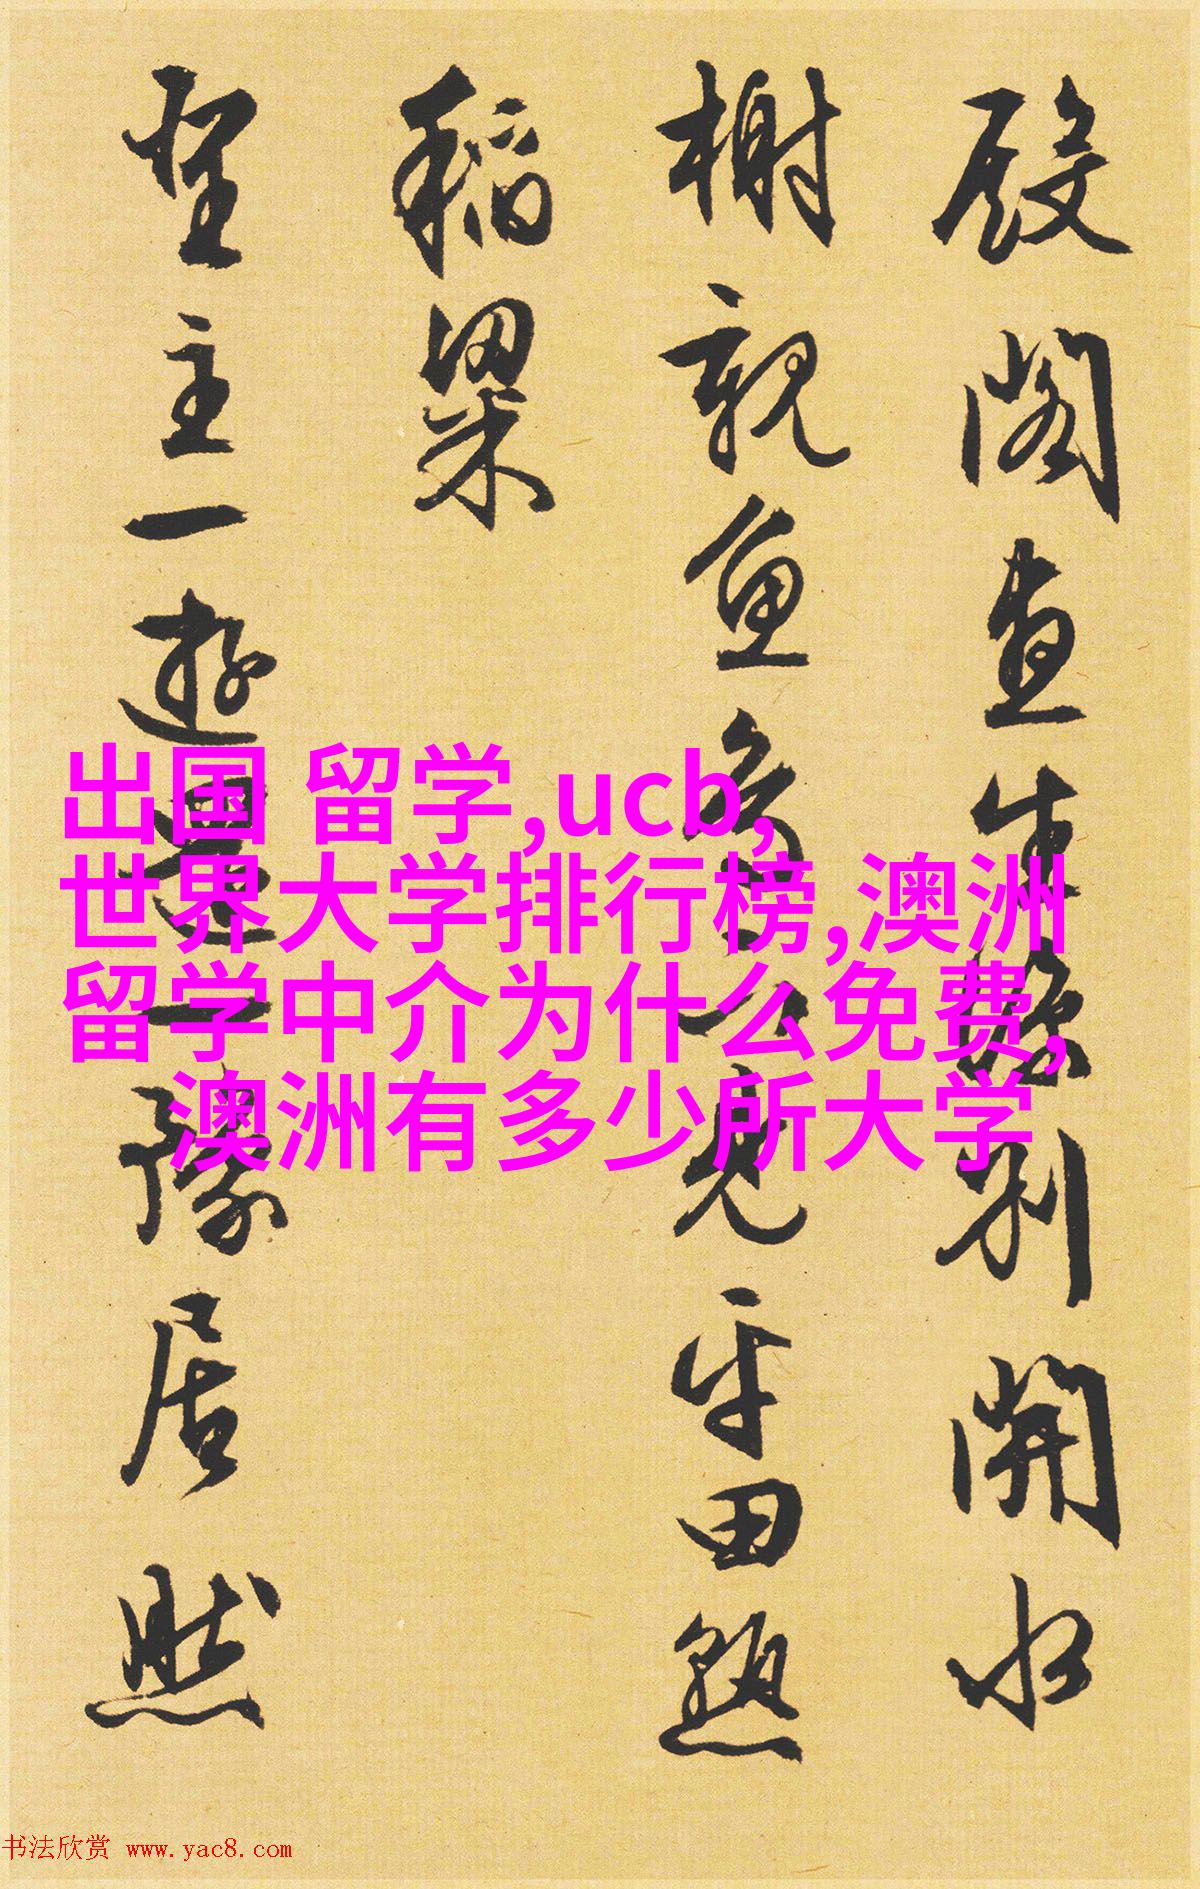 殿閣生涼別開水
榭親魚見平田熟
稻粱
聖主一遊還一豫居然
出国 留学,ucb,
世界大学排行榜,澳洲
留学中介为什么免费,
澳洲有多少所大学
书法欣赏 www.yac8.com